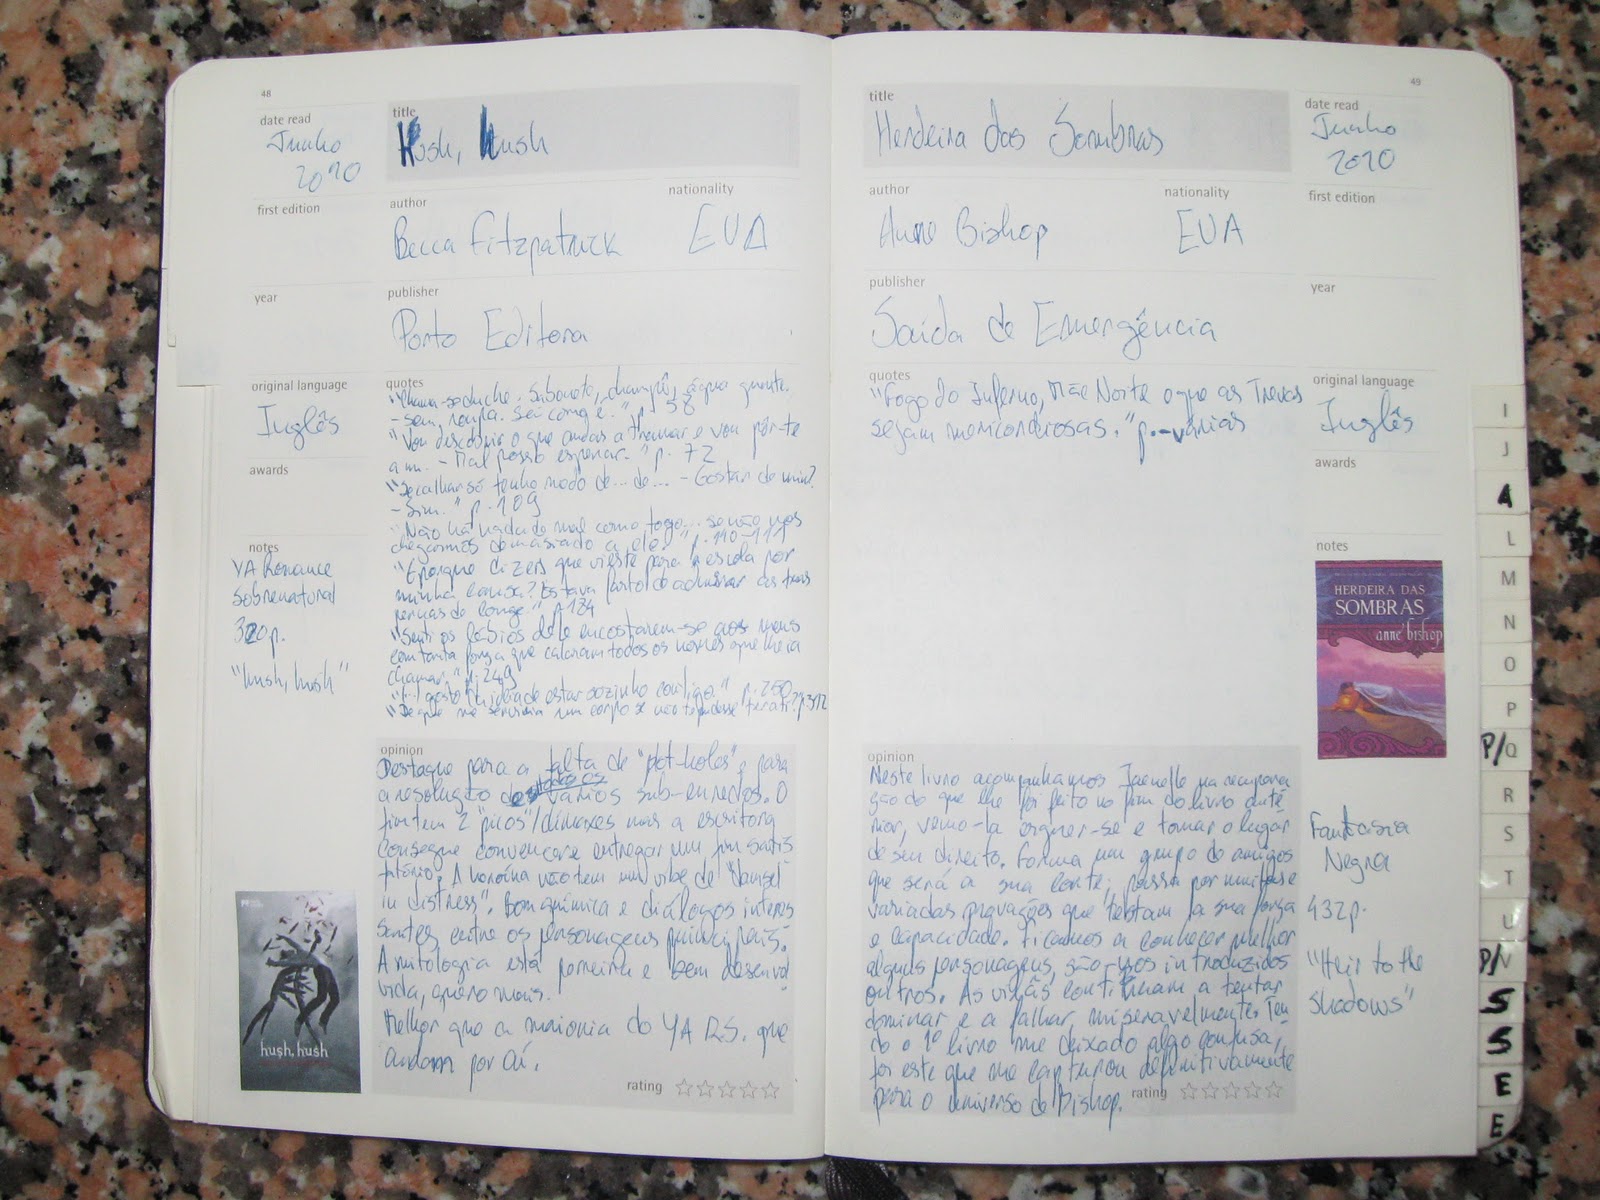 48
date read
Junho
2010
title
Hush, hush
first edition
author
Becca Fitzpatrick
nationality
EUA
year
publisher
Porto Editora
original language
Inglês
awards
notes
YA Romance
Sobrenatural
320p.
"hush, hush"
hush, hush
quotes
"Chama-se duche. Sabonete, champô, água quente.
- Sem roupa. Sei como é." p. 58
"Vou descobrir o que andas a tramar e vou pôr-te
a nu. - Mal posso esperar." p. 72
"Se calhar só tenho medo de... de... - Gostar de mim?
- Sim." p. 109
"Não há nada de mal com o fogo... se não nos
chegarmos demasiado a ele." p. 110-111
"E porque dizes que vieste para a escola por
minha causa? Estava farto de admirar as tuas
pernas de longe." p. 184
"Senti os lábios dele encostarem-se aos meus
com tanta força que calaram todos os nomes que lhe ia
chamar." p. 249
gosto da ideia de estar sozinho contigo." p. 250
"De que me serviria um corpo se não te pudesse ter a ti?" p. 312
opinion
Destaque para a falta de "plot-holes" e para
a resolução de todos os vários sub-enredos. O
fim tem 2 "picos"/climaxes mas a escritora
consegue convencer e entregar um fim satis
fatório. A heroína não tem um vibe de "damsel
in distress". Bom química e diálogos interes
santes, entre os personagens principais.
A mitologia está porreira e bem desenvol
vida, quero mais.
Melhor que a maioria do YA R.S. que
andam por aí.
rating
49
title
Herdeira das Sombras
date read
Junho
2010
author
Anne Bishop
nationality
EUA
first edition
publisher
Saída de Emergência
year
quotes
"Fogo do Inferno, Mãe Noite e que as Trevas
sejam misericordiosas." p.-várias
original language
Inglês
awards
notes
HERDEIRA DAS
SOMBRAS
anne bishop
Fantasia
Negra
432p.
"Heir to the
Shadows"
opinion
Neste livro acompanhamos Jaenelle na recupera
ção do que lhe foi feito no fim do livro anté
rior, vemo-la erguer-se e tomar o lugar
de seu direito. Forma um grupo de amigos
que será a sua corte; passa por muitas e
variadas provações que testam a sua força
e capacidade. Ficamos a conhecer melhor
alguns personagens, são-nos introduzidos
outros. As vilãs continuam a tentar
dominar e a falhar miseravelmente. Ten
do o 1º livro me deixado algo confusa,
foi este que me capturou definitivamente
para o universo de Bishop.
rating
I
J
A
L
M
N
O
P
P/Q
R
S
T
U
P/V
S
S
E
E